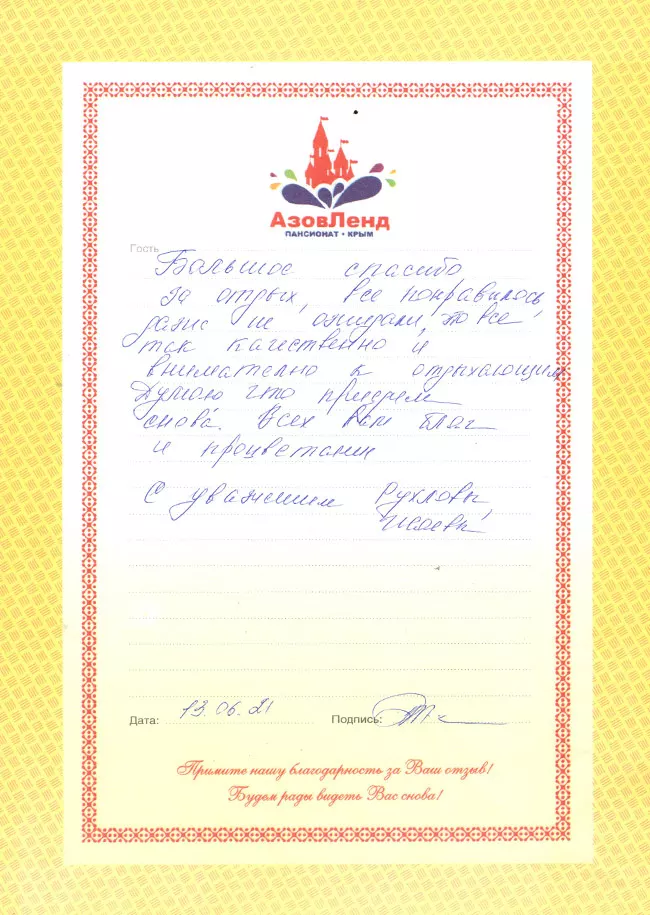 АзовЛенд
ПАНСИОНАТ • КРЫМ
Гость
Большое спасибо
за отдых, все понравилось,
даже не ожидали, что все
так качественно и
внимательно к отдыхающим
Думаю что приедем
снова. Всех Вам благ
и процветания
С уважением Рухловы,
Исаевы
Дата: 13.06.21 Подпись:
Примите нашу благодарность за Ваш отзыв!
Будем рады видеть Вас снова!